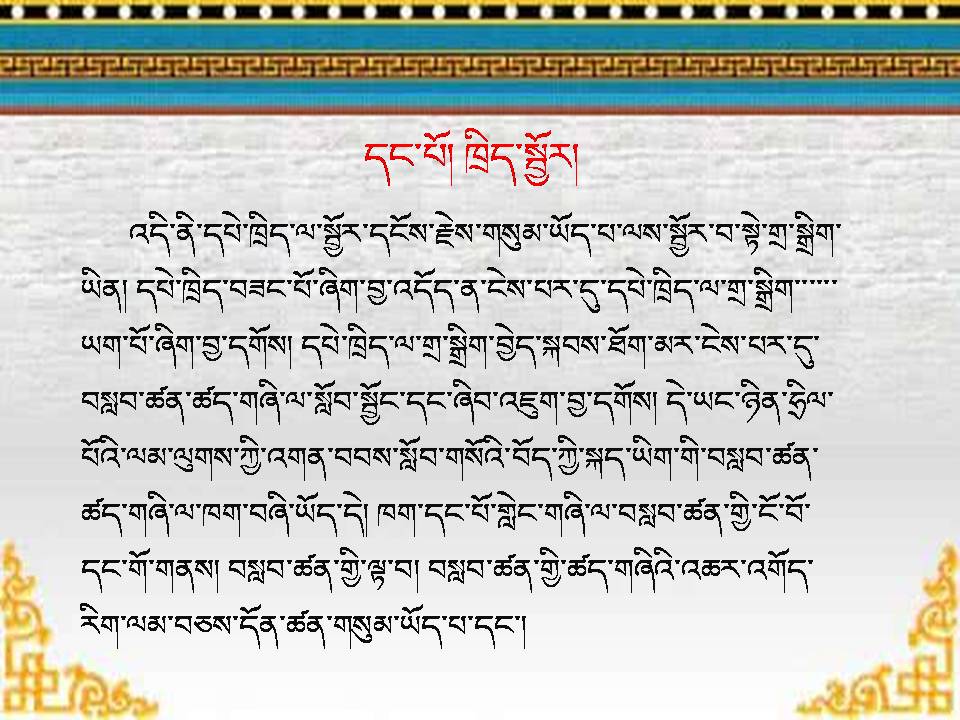 དང་པོ། ཁྲིད་སྦྱོར།
འདི་ནི་དཔེ་ཁྲིད་ལ་སྦྱོར་དངོས་རྗེས་གསུམ་ཡོད་པ་ལས་སྦྱོར་བ་སྟེ་གྲ་སྒྲིག་
ཡིན། དཔེ་ཁྲིད་བཟང་པོ་ཞིག་བྱ་འདོད་ན་ངེས་པར་དུ་དཔེ་ཁྲིད་ལ་གྲ་སྒྲིག་་་་་་
ཡག་པོ་ཞིག་བྱ་དགོས། དཔེ་ཁྲིད་ལ་གྲ་སྒྲིག་བྱེད་སྐབས་ཐོག་མར་ངེས་པར་དུ་
བསླབ་ཚན་ཚད་གཞི་ལ་སློབ་སྦྱོང་དང་ཞིབ་འཇུག་བྱ་དགོས། དེ་ཡང་ཉིན་ཧྲིལ་
པོའི་ལམ་ལུགས་ཀྱི་འགན་བབས་སློབ་གསོའི་བོད་ཀྱི་སྐད་ཡིག་གི་བསླབ་ཚན་
ཚད་གཞི་ལ་ཁག་བཞི་ཡོད་དེ། ཁག་དང་པོ་གླེང་གཞི་ལ་བསླབ་ཚན་གྱི་ངོ་བོ་
དང་གོ་གནས། བསླབ་ཚན་གྱི་ལྟ་བ། བསླབ་ཚན་གྱི་ཚད་གཞིའི་འཆར་འགོད་
རིག་ལམ་བཅས་དོན་ཚན་གསུམ་ཡོད་པ་དང་།